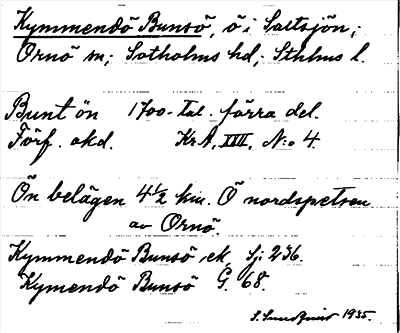 Kymmendö Bunsö, ö i Saltsjön;
Ornö sn; Sotholms hd; Sthlms l.
Bunt ön 1700-tal. förra del.
Förf. okd. Kr.A. XXII, N:o 4.
Ön belägen 4½ km. Ö nordspetsen
av Ornö.
Kymmendö Bunsö ek, Sj: 236.
Kymendö Bunsö G. 68.
S. Sundquist 1935.